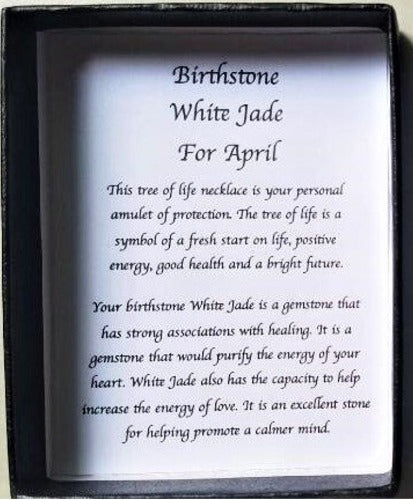 Birthstone
White Jade
For April
This tree of life necklace is your personal
amulet of protection. The tree of life is a
symbol of a fresh start on life, positive
energy, good health and a bright future.
Your birthstone White Jade is a gemstone that
has strong associations with healing. It is a
gemstone that would purify the energy of your
heart. White Jade also has the capacity to help
increase the energy of love. It is an excellent stone
for helping promote a calmer mind.